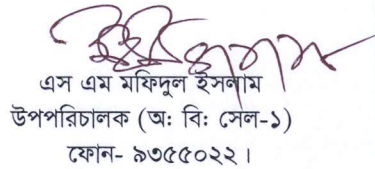 এস এম মফিদুল ইসলাম
উপপরিচালক (অ: বি: সেল-১)
ফোন- ৯৩৫৫০২২।